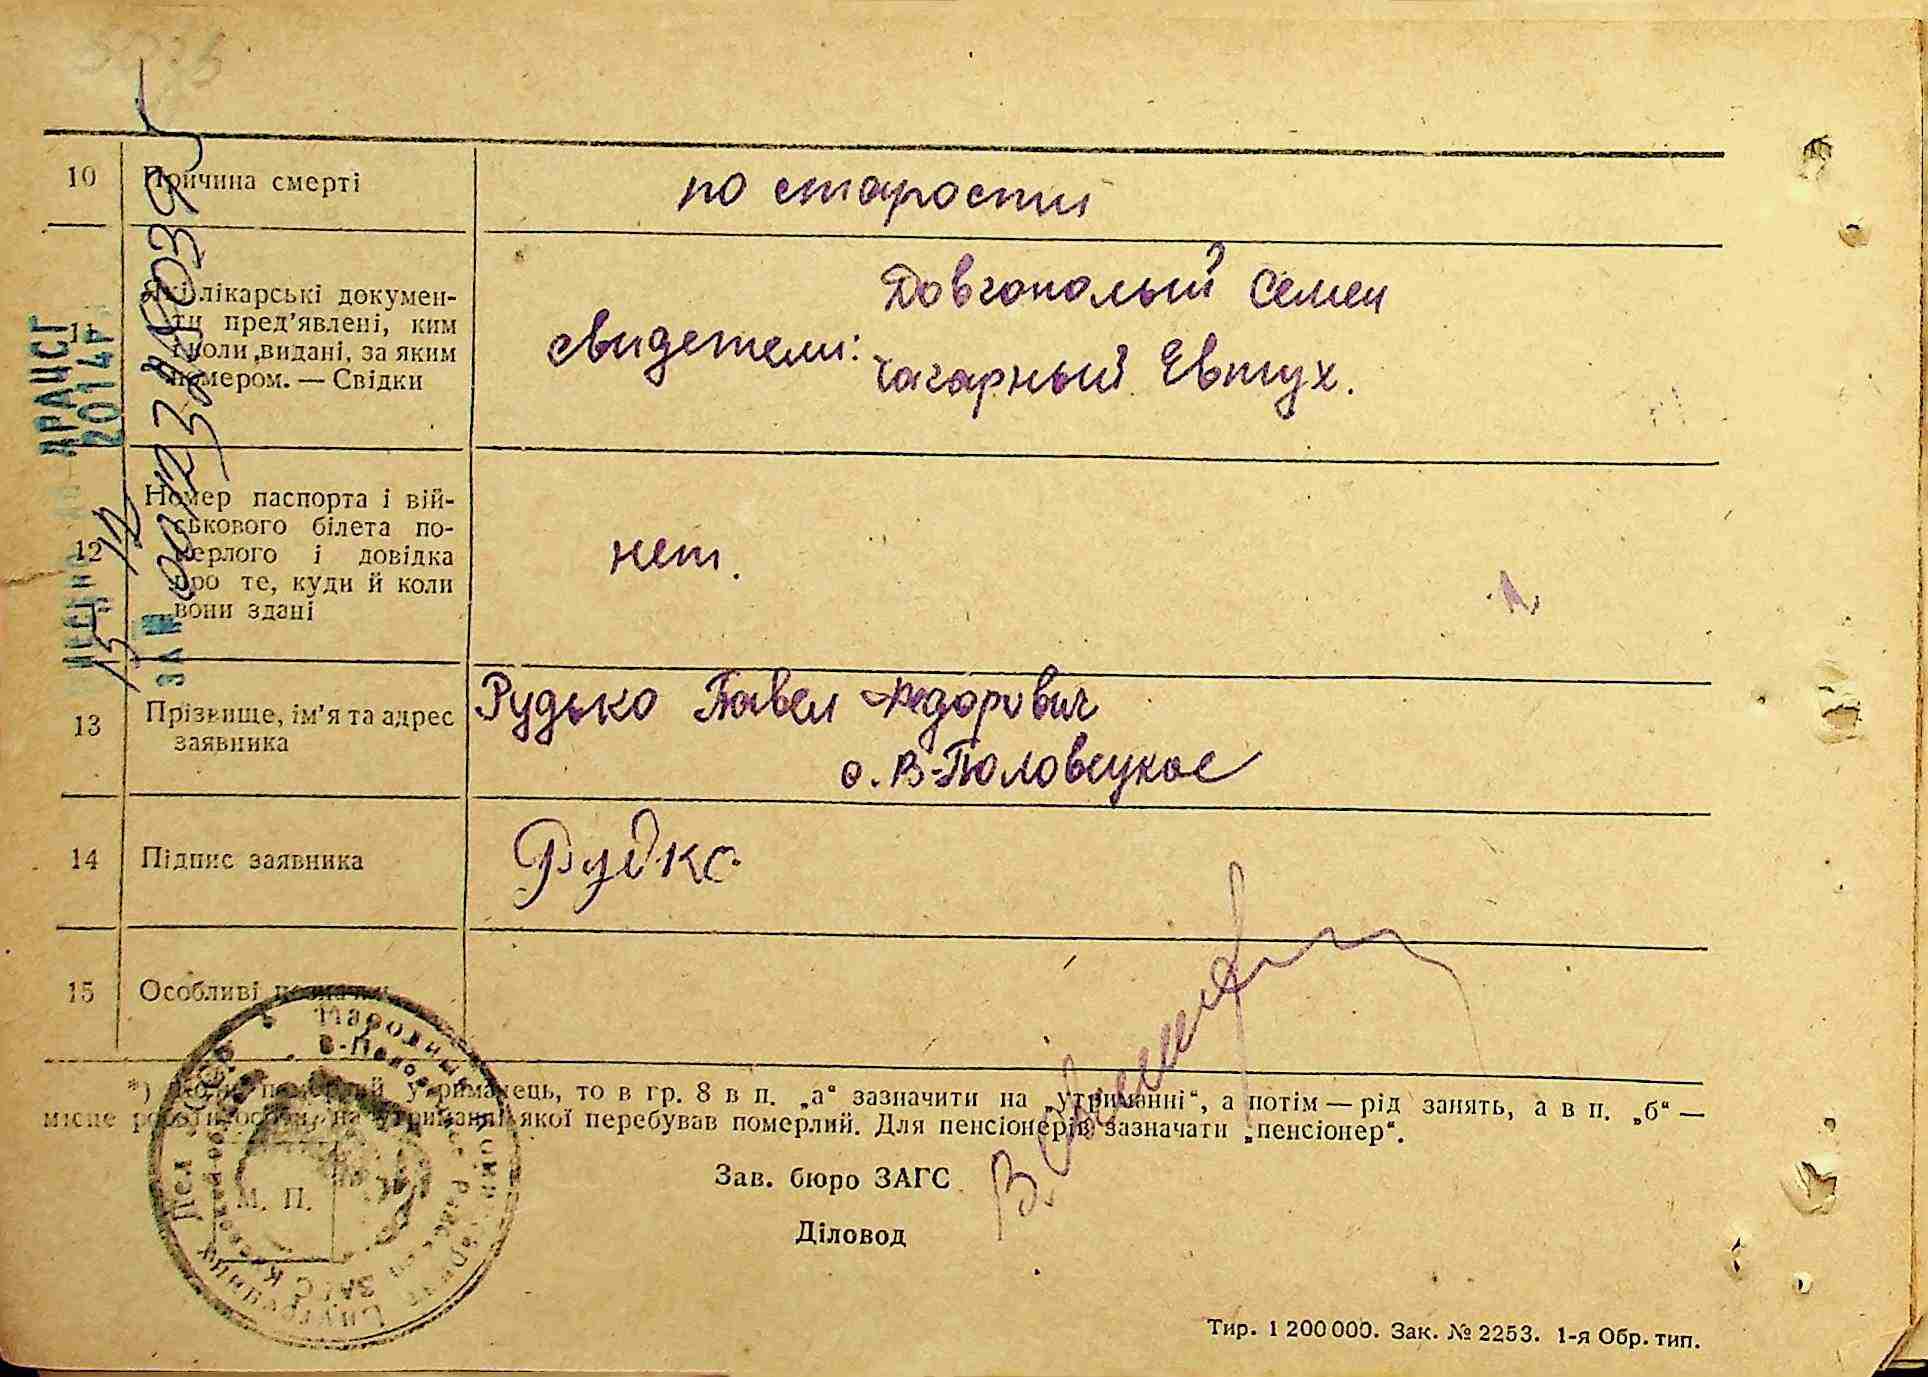 10 Причина смерті по старости
11 Які лікарські докумен-
ти пред'явлені, ким
і коли видані, за яким
номером. — Свідки
Довгополый Семен
свидетели:
Чагарный Евтух.
12 Номер паспорта і вій-
ськового білета по-
мерлого і довідка
про те, куди й коли
вони здані
нет.
13 Прізвище, ім'я та адрес
заявника
Рудько Павел Федорович
с. В-Половецкое
14 Підпис заявника Рудко
15 Особливі позначки
*) Коли померлий утриманець, то в гр. 8 в п. „а“ зазначити на „утриманні“, а потім — рід занять, а в п. „б“ —
місце роботи особи, на утриманні якої перебував померлий. Для пенсіонерів зазначати „пенсіонер“.
Зав. бюро ЗАГС
Діловод
М. П.
Тир. 1 200 000. Зак. № 2253. 1-я Обр. тип.
ДРАЦСГ
2014р
15 12
ЗА №
Народный
В-Полов
Внутренних Дел
ЗАГС